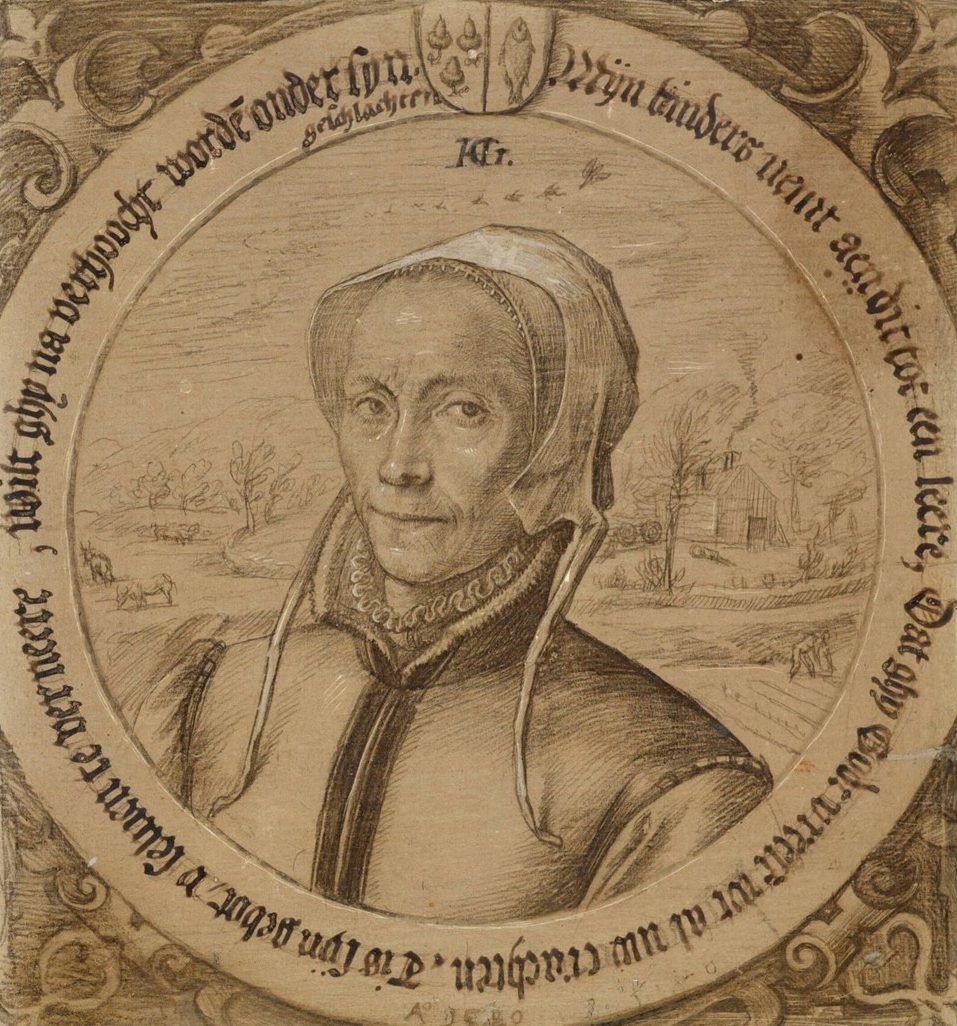 Mijn kinders nemt aen dit tot een leere, Dat ghy God: vreest wt al uw crachten. Tis sijn gebot, v leuen te verneere, wilt ghy na verhoocht wordē onder syn.
geschlachten
Aº 1580